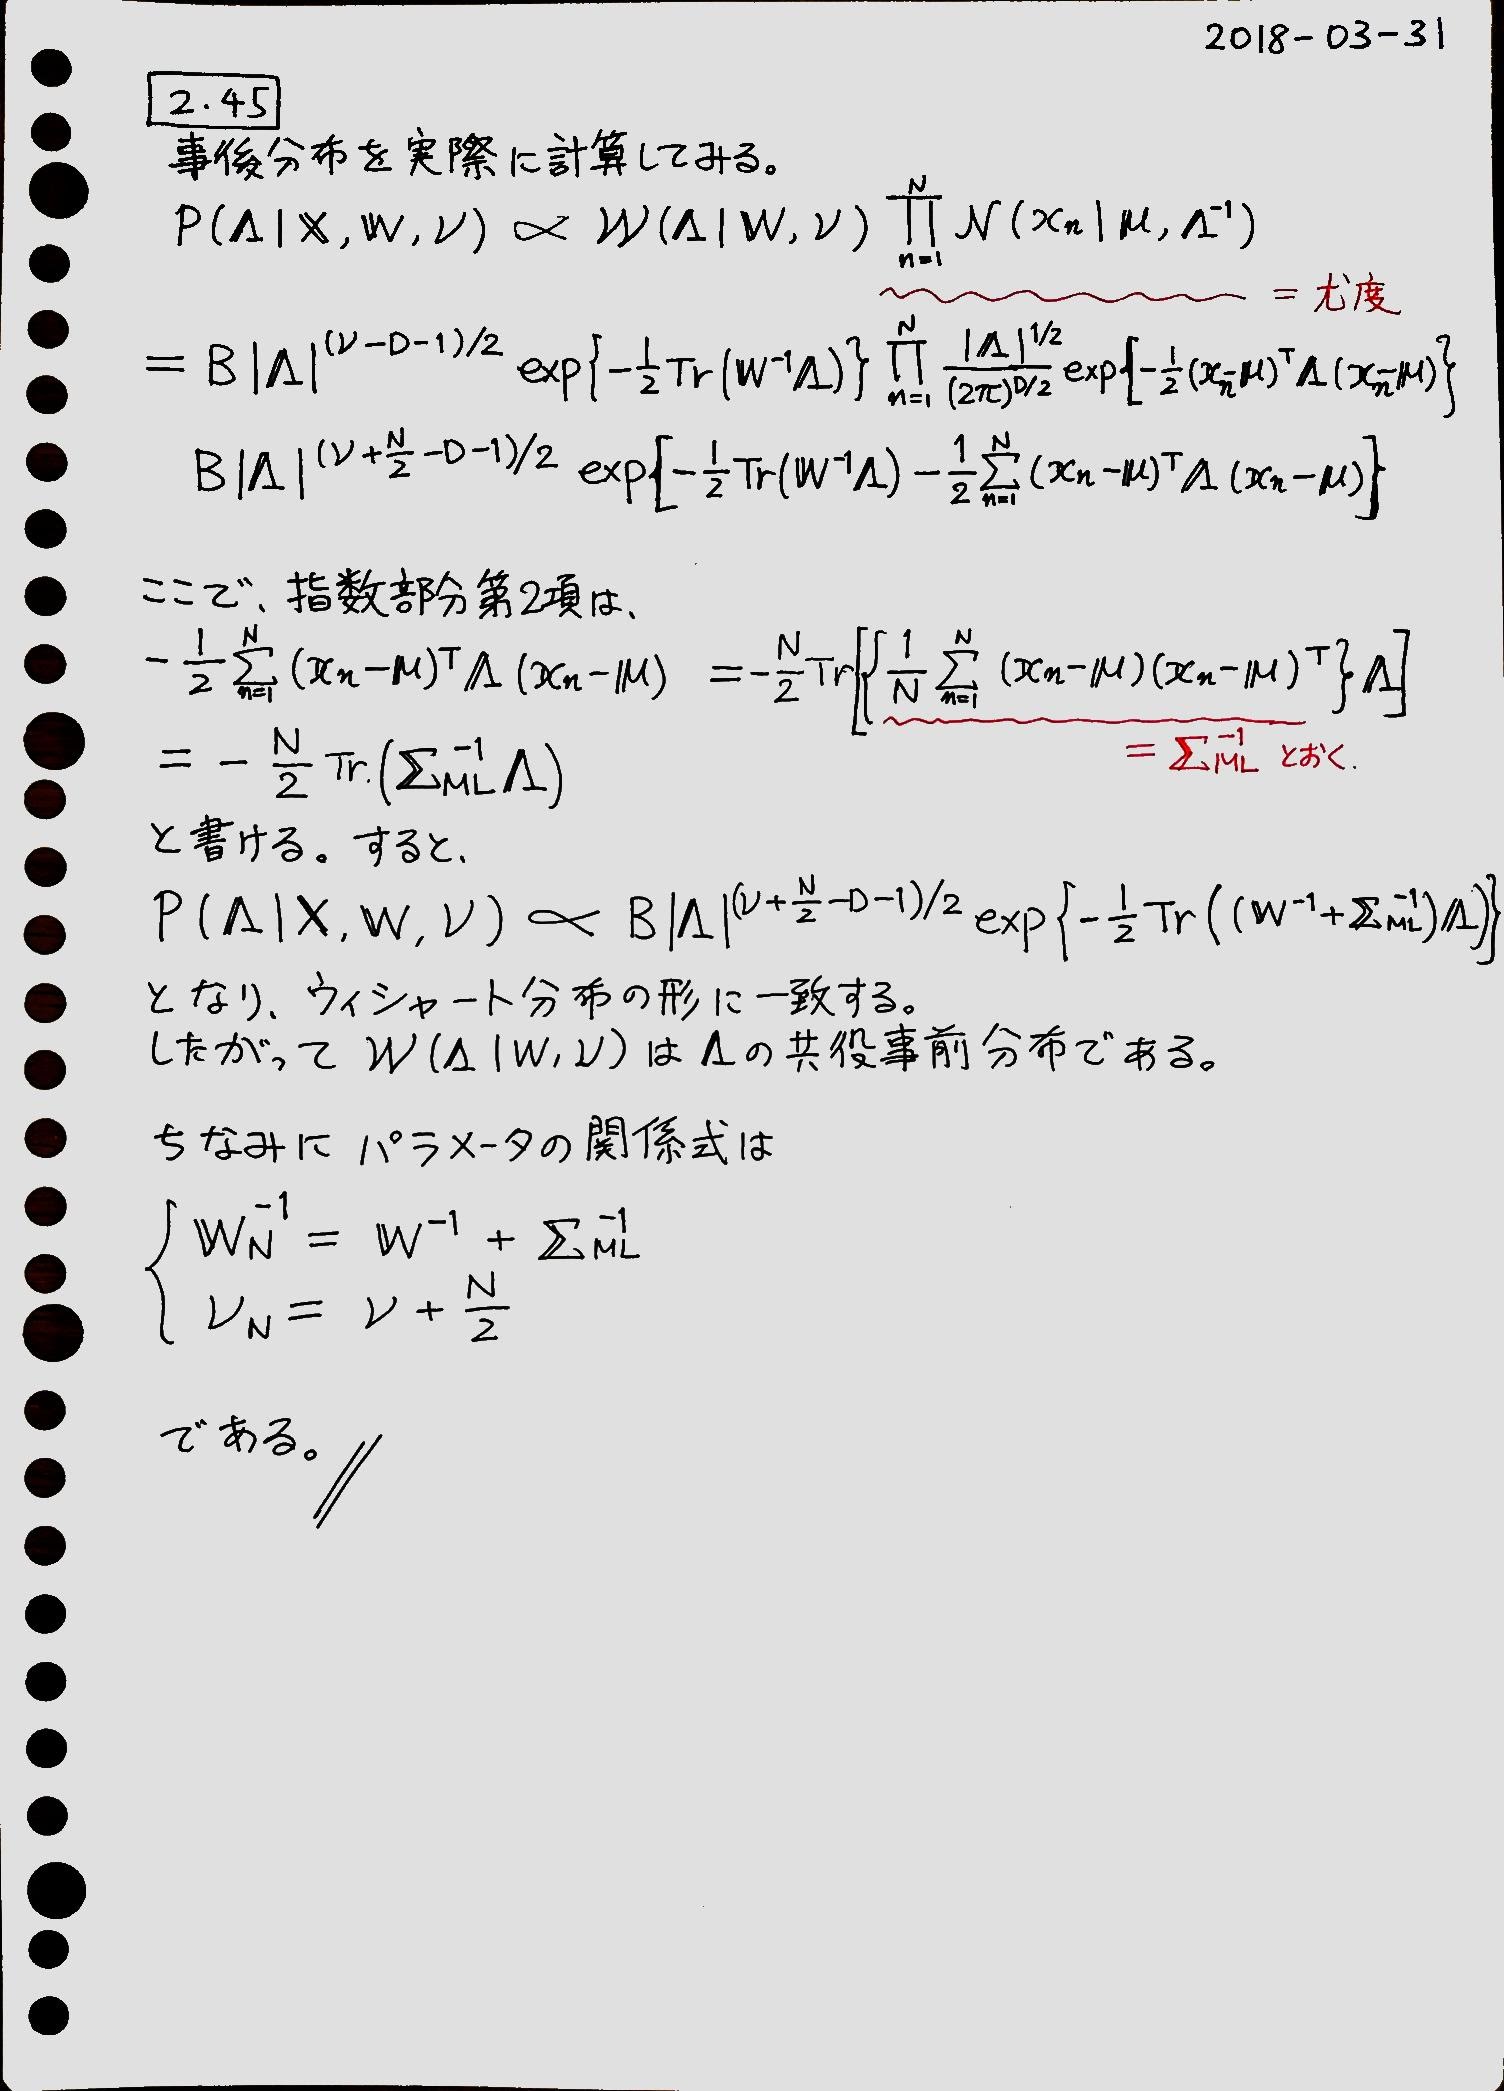 2018-03-31
2.45
事後分布を実際に計算してみる。
P(Λ|X, W, ν) ∝ W(Λ|W, ν) ∏_{n=1}^{N} N(x_n|μ, Λ^{-1})
= 尤度
= B|Λ|^{(ν-D-1)/2} exp{-1/2 Tr(W^{-1}Λ)} ∏_{n=1}^{N} |Λ|^{1/2}/(2π)^{D/2} exp{-1/2 (x_n-μ)^T Λ (x_n-μ)}
B|Λ|^{(ν+N/2-D-1)/2} exp{-1/2 Tr(W^{-1}Λ) - 1/2 Σ_{n=1}^{N} (x_n-μ)^T Λ (x_n-μ)}
ここで、指数部分第2項は、
-1/2 Σ_{n=1}^{N} (x_n-μ)^T Λ (x_n-μ) = -N/2 Tr[{1/N Σ_{n=1}^{N} (x_n-μ)(x_n-μ)^T}Λ]
= Σ_{ML}^{-1} とおく.
= -N/2 Tr.(Σ_{ML}^{-1}Λ)
と書ける。すると、
P(Λ|X, W, ν) ∝ B|Λ|^{(ν+N/2-D-1)/2} exp{-1/2 Tr((W^{-1}+Σ_{ML}^{-1})Λ)}
となり、ウィシャート分布の形に一致する。
したがって W(Λ|W, ν) は Λの共役事前分布である。
ちなみに パラメータの関係式は
{ W_N^{-1} = W^{-1} + Σ_{ML}^{-1}
ν_N = ν + N/2
である。//